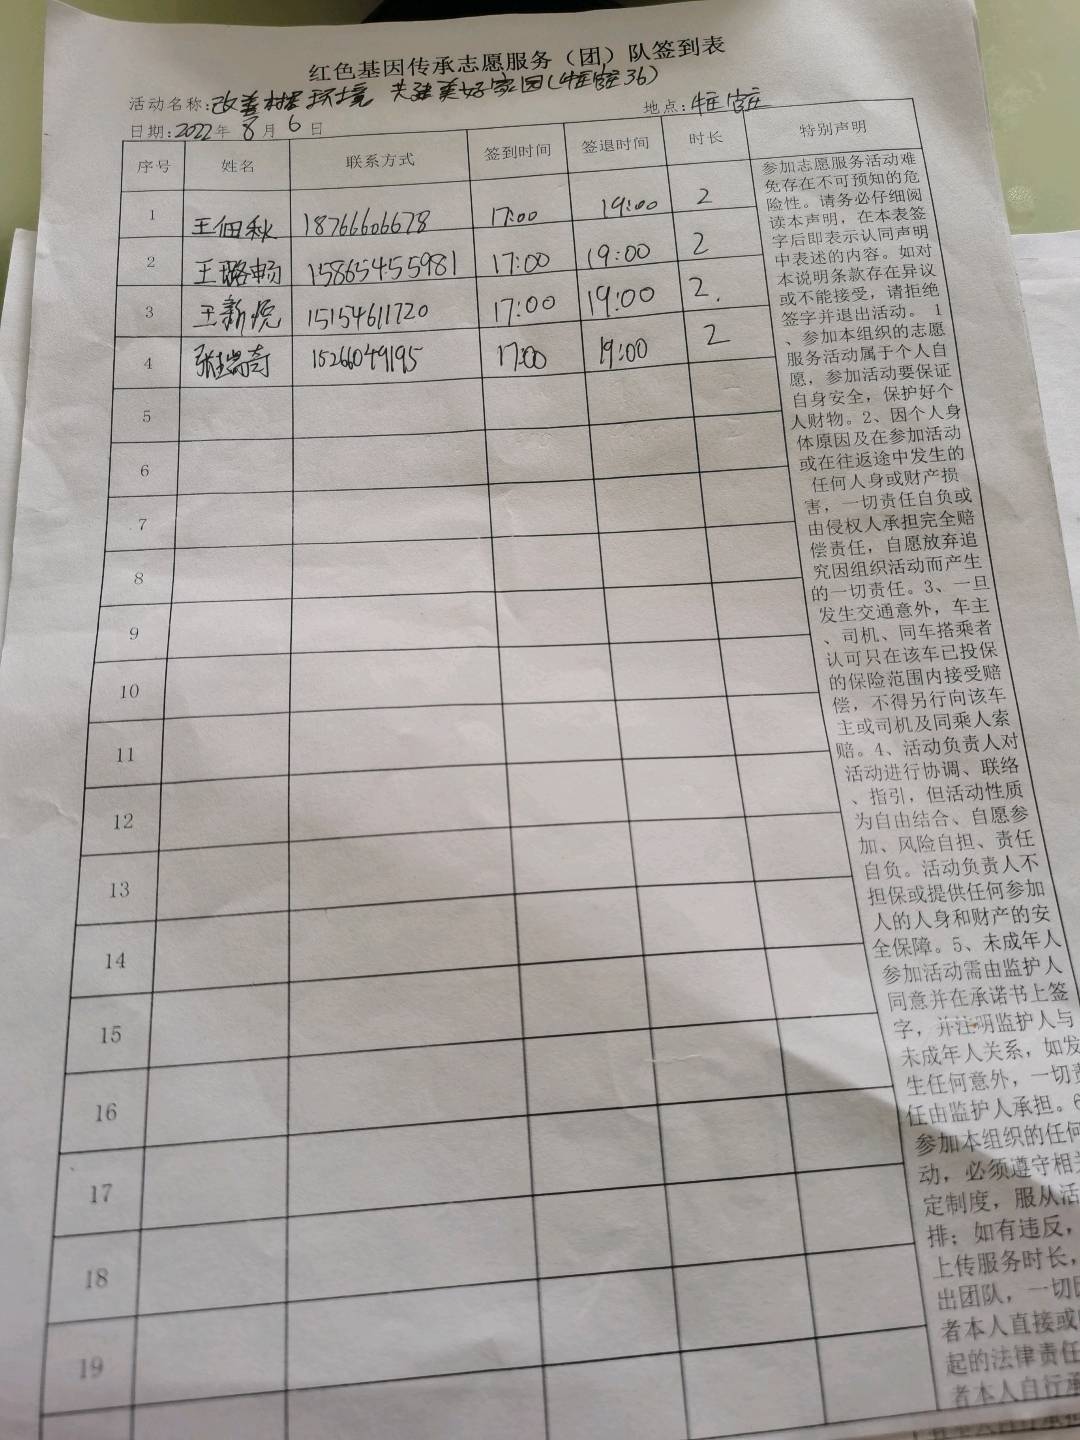 红色基因传承志愿服务（团）队签到表
活动名称:改善村居环境 共建美好家园(牛庄36)
日期:2022年8月6日 地点:牛庄
序号 姓名 联系方式 签到时间 签退时间 时长 特别声明
1 王佃秋 18766606678 17:00 19:00 2
2 王璐畅 15865455981 17:00 19:00 2
3 王新悦 15154611720 17:00 19:00 2.
4 张瑞奇 15266049195 17:00 19:00 2
5
6
7
8
9
10
11
12
13
14
15
16
17
18
19
参加志愿服务活动难
免存在不可预知的危
险性。请务必仔细阅
读本声明，在本表签
字后即表示认同声明
中表述的内容。如对
本说明条款存在异议
或不能接受，请拒绝
签字并退出活动。 1
、参加本组织的志愿
服务活动属于个人自
愿，参加活动要保证
自身安全，保护好个
人财物。2、因个人身
体原因及在参加活动
或在往返途中发生的
任何人身或财产损
害，一切责任自负或
由侵权人承担完全赔
偿责任，自愿放弃追
究因组织活动而产生
的一切责任。3、一旦
发生交通意外，车主
、司机、同车搭乘者
认可只在该车已投保
的保险范围内接受赔
偿，不得另行向该车
主或司机及同乘人索
赔。4、活动负责人对
活动进行协调、联络
、指引，但活动性质
为自由结合、自愿参
加、风险自担、责任
自负。活动负责人不
担保或提供任何参加
人的人身和财产的安
全保障。5、未成年人
参加活动需由监护人
同意并在承诺书上签
字，并注明监护人与
未成年人关系，如发
生任何意外，一切责
任由监护人承担。6
参加本组织的任何
动，必须遵守相关
定制度，服从活
排；如有违反，
上传服务时长，
出团队，一切因
者本人直接或
起的法律责任
者本人自行承